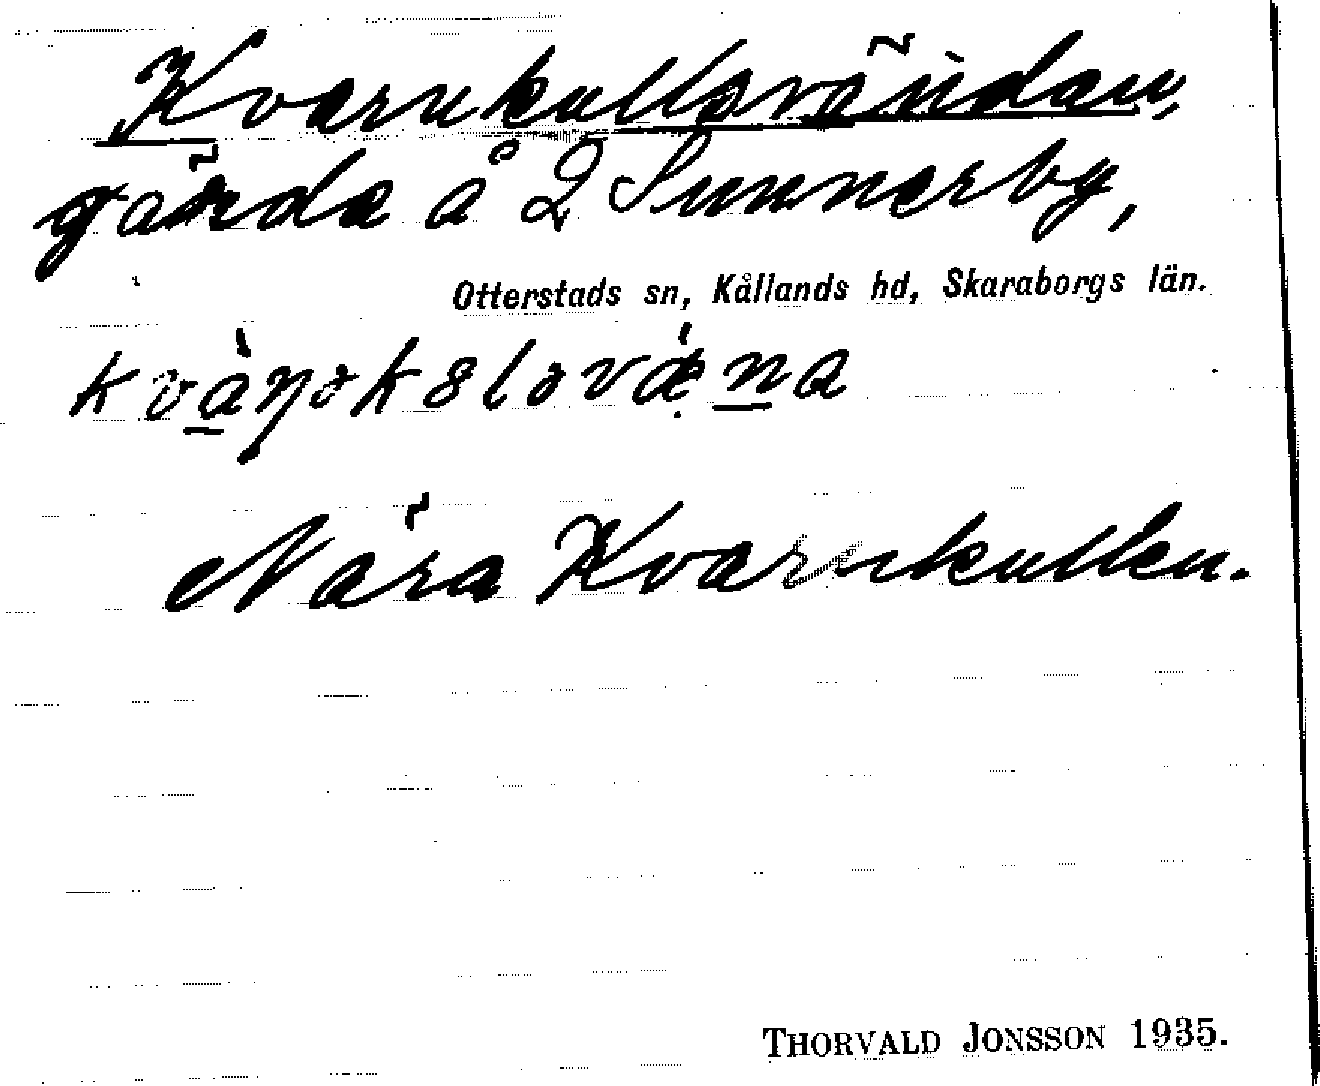 Kvarnkullsvändan,
gärde å 2 Sunnerby,
Otterstads sn, Kållands hd, Skaraborgs län.
Nära Kvarnkullen.
THORVALD JONSSON 1935.